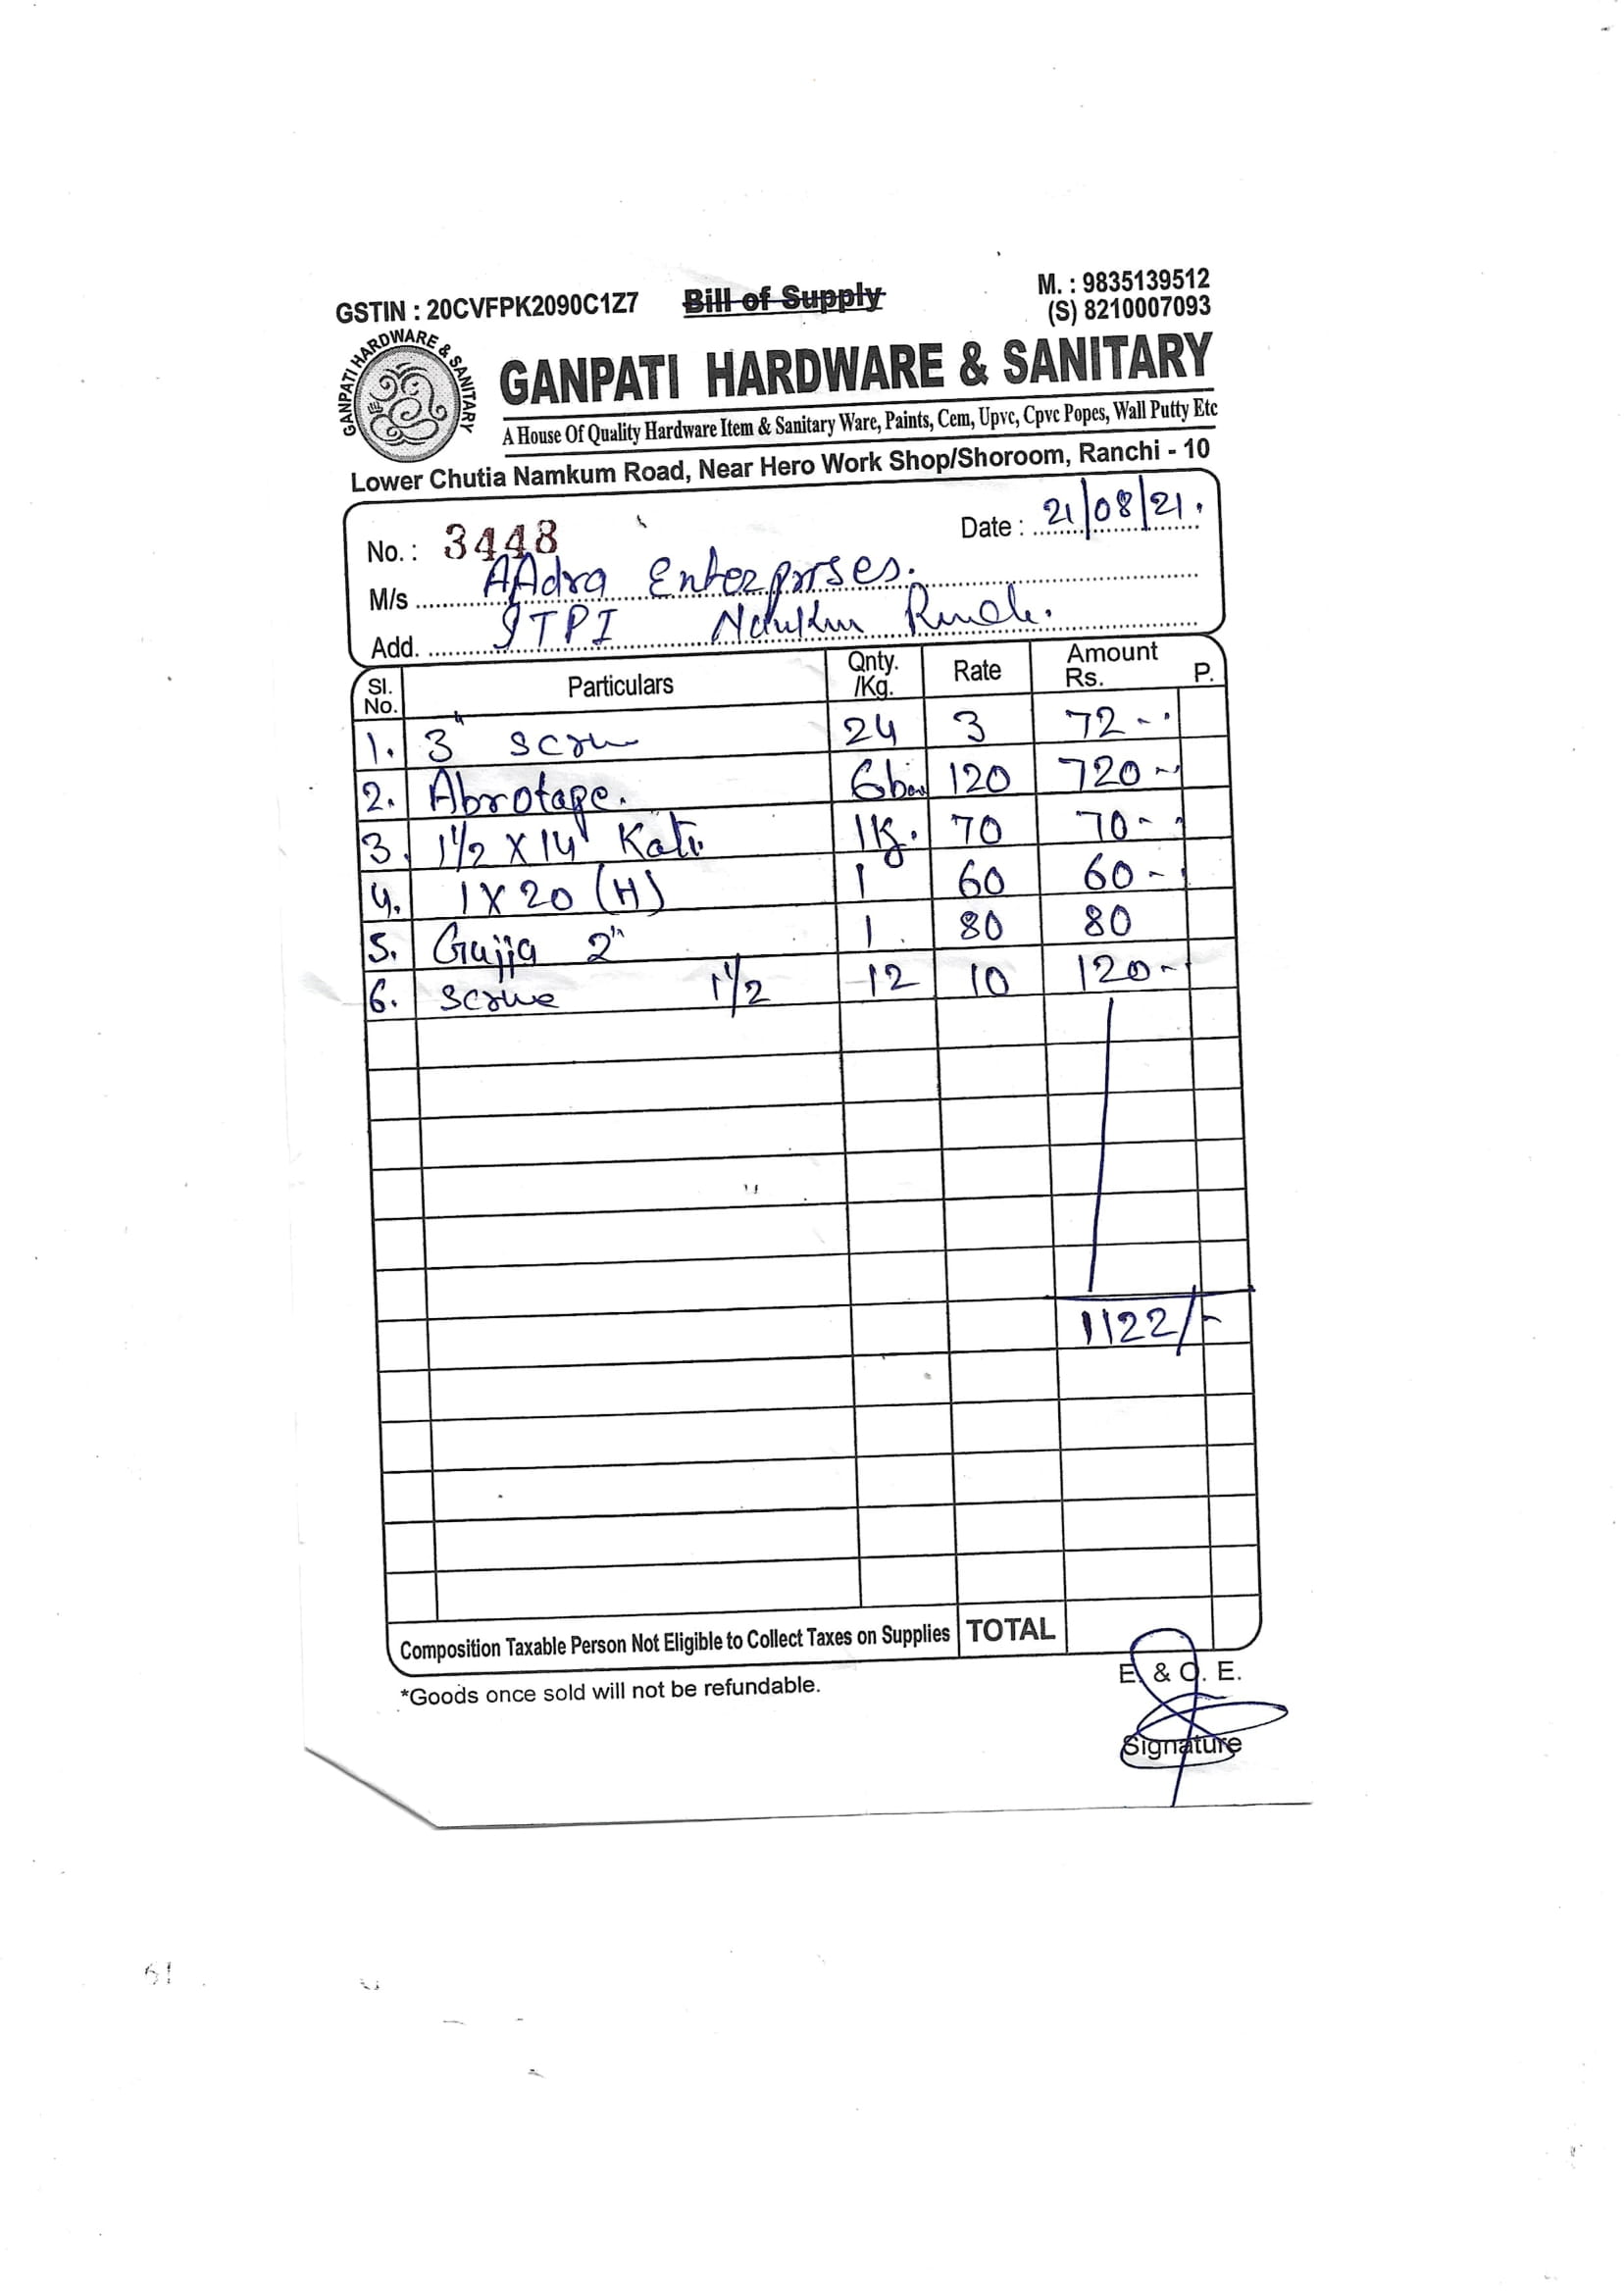 GSTIN : 20CVFPK2090C1Z7 Bill of Supply M. : 9835139512
(S) 8210007093
GANPATI HARDWARE & SANITARY
GANPATI HARDWARE & SANITARY
A House Of Quality Hardware Item & Sanitary Ware, Paints, Cem, Upvc, Cpvc Popes, Wall Putty Etc
Lower Chutia Namkum Road, Near Hero Work Shop/Shoroom, Ranchi - 10
No. : 3448 Date : 21/08/21.
M/s AAdra Enterprises.
Add. STPI
Sl. No. Particulars Qnty. /Kg. Rate Amount Rs. P.
1. 3" 24 3 72 -
2. Abrotape. 6 120 720 -
3. 1½ X 14 70 70 -
4. 1 X 20 (H) 1 60 60 -
5. Gujja 2" 1 80 80
6. Scrwe 1½ 12 10 120 -
1122/-
Composition Taxable Person Not Eligible to Collect Taxes on Supplies TOTAL
*Goods once sold will not be refundable.
E. & O. E.
Signature